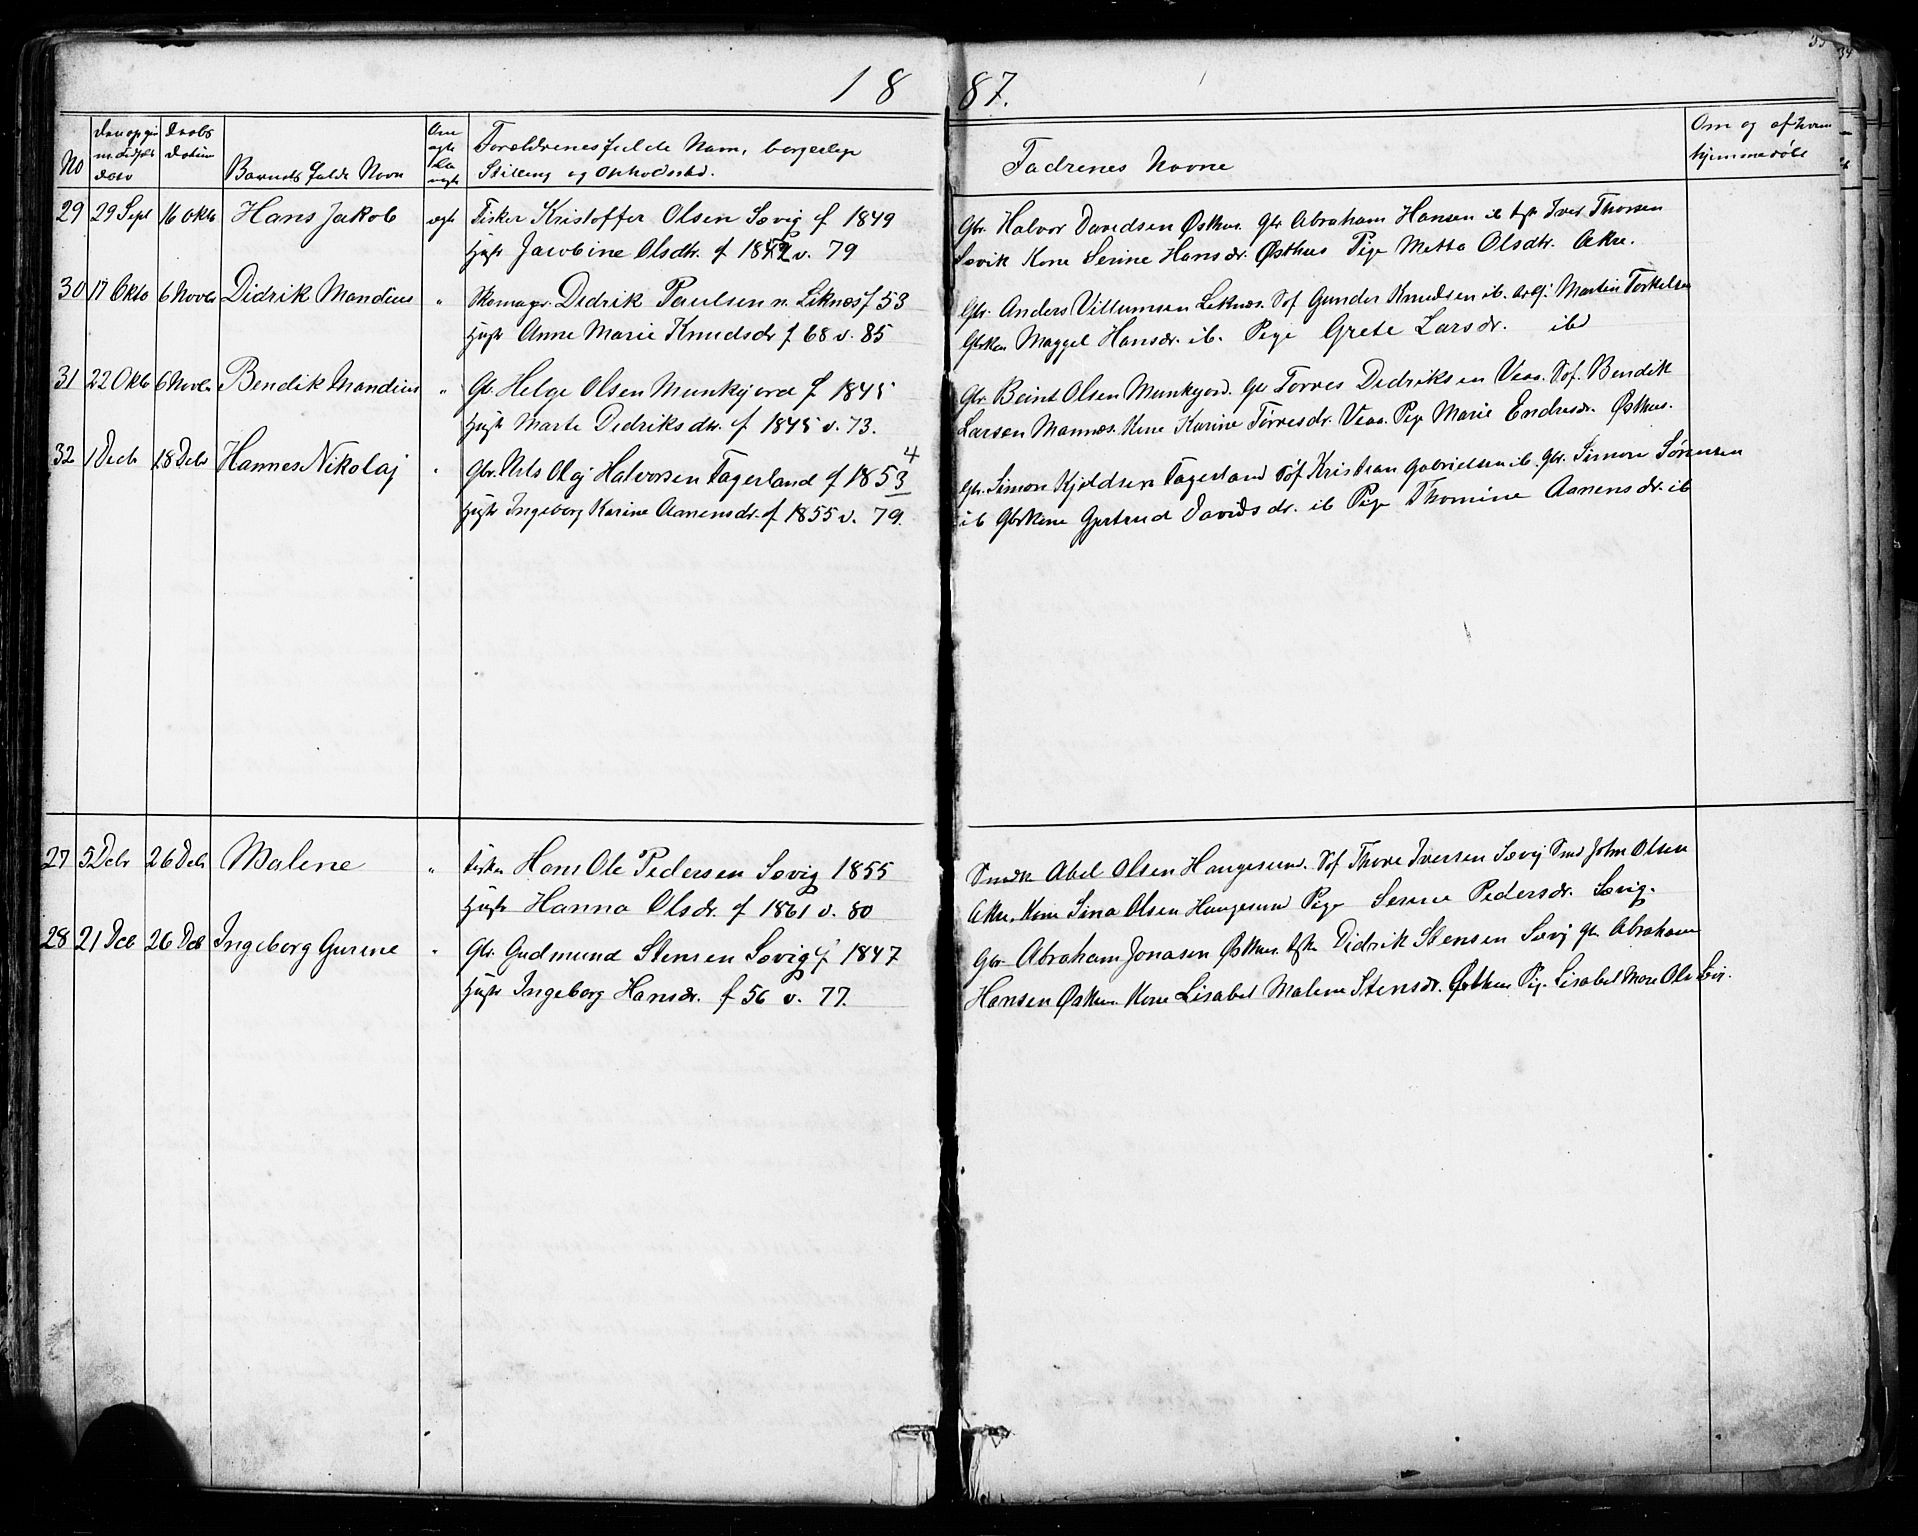 18 87.
No Barnets fulde Navn Forældrenes fulde Navn, borgerlige
Stilling og Opholdssted.
Fadrenes Navne
Om og af hvem
hjemmedøbt
29 29 Sept 16 Okto Hans Jakob ægte Fisker Kristoffer Olsen Sævig f 1849
Hustr Jacobine Olsdtr. f 1852 v. 79
Gbr. Halvor Davidsen Østhus. Gbr Abraham Hansen ib Iver Thorsen
Sævik Kone Serine Hansdr. Østhus Pige Metta Olsdtr. Akre.
30 17 Okto 6 Novbr Didrik Mandius " Skomagr. Didrik Paulsen n. Leknæs f 53
Hustr Anne Marie Knudsdr f 68 v. 85
Gbr. Anders Villumsen Leknæs. Søf Gunder Knudsen ib. Arbf. Martin Torkelsen
Gbrkone Maggel Hansdr. ib. Pige Grete Larsdr. ibd
31 22 Okto 6 Novbr Bendik Mandius " Gb. Helge Olsen Munkejord f 1845
Hustr Marte Didriksdtr. f 1845 v. 73.
Gbr. Beint Olsen Munkejord. Gbr Torres Didriksen Veaa. Søf. Bendik
Larsen Mannes. Kone Karine Torresdr. Veaa. Pige Marie Endresdr. Østhus.
32 1 Decb 18 Decbr Hannes Nikolaj " Gbr. Nils Olaj Halvorsen Fagerland f 1853 4
Hustr Ingeborg Karine Aanensdr. f 1855 v. 79.
Gbr. Simon Kjeldsen Fagerland Søf Kristian Gabrielsen ib. Gbr. Simon Sørensen
ib Gbrkone Gjertrud Davidsdr. ib Pige Thomine Aanensdr. ib
27 5 Debr 26 Debr Malene " Fisker Hans Ole Pedersen Sævig 1855
Hustr Hanna Olsdr. f 1861 v. 80
Smedk Abel Olsen Haugesund. Søf Thore Iversen Sævig Smd John Olsen
Akre. Kone Sina Olsen Haugesund Pige Serine Pedersdr. Sævig.
28 21 Dcb 26 Dcb Ingeborg Gurine " Gbr. Gudmund Stensen Sævig f 1847
Hustr Ingeborg Hansdr. f 56 v. 77.
Gbr Abraham Jonasen Østhus. Didrik Stensen Sævig Gbr Abraham
Hansen Østhus. Kone Lisabet Malene Stensdr. Østhus Pig. Lisabet